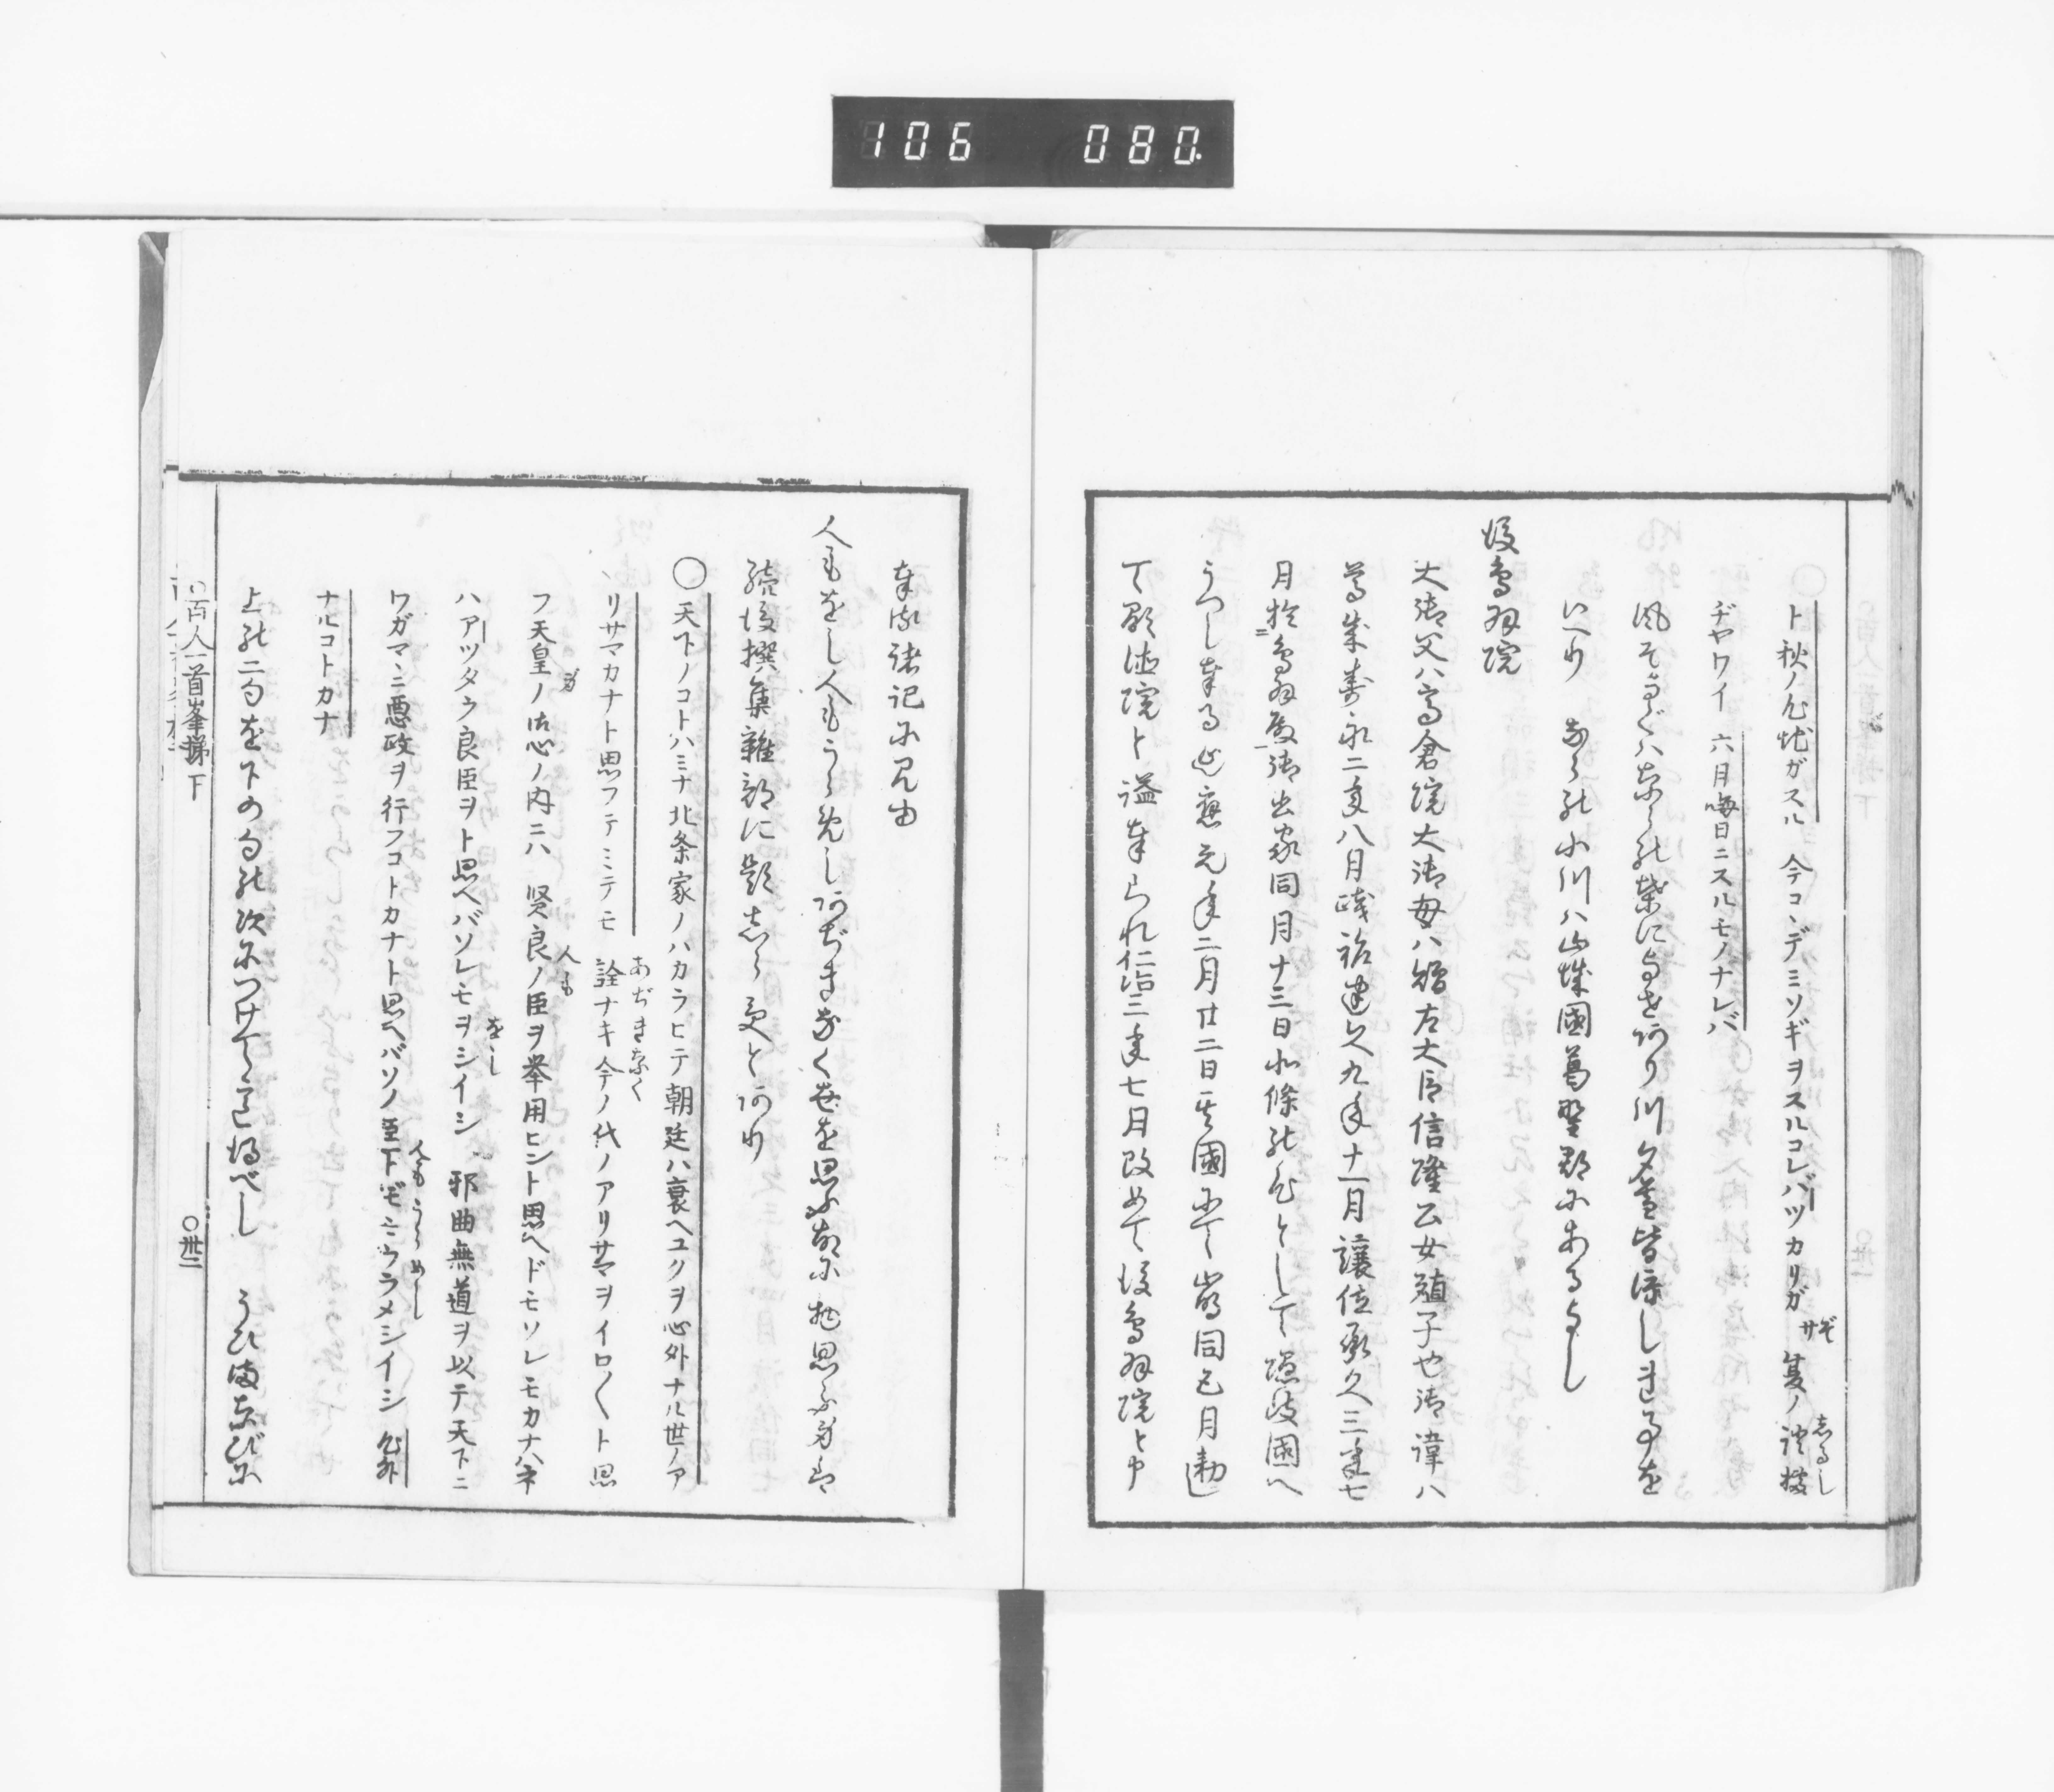 106 080
ト秋ノ心忙ガスル 今コヽデミソギヲスルコレバツカリガ 夏ノ 禊
ぞ
サ
志るし
ヂヤワイ 六月晦日ニスルモノナレバ
風そよぐハならの葉によせあり川夕暮皆涼しき事を
いへり ならの小川ハ山城國葛野郡にあるよし
後鳥羽院
大御父ハ高倉院大御母ハ贈左大臣信隆公女殖子也御諱ハ
尊成壽永二年八月踐祚建久九年十一月讓位承久三年七
月於鳥羽殿御出家同月十三日北條の心として隠岐國へ
うつし奉る延應元年二月廿二日其國にて崩同五月勅し
て顕徳院と謚奉られ仁治三年七月改めて後鳥羽院と申
奉る諸記に見ゆ
人もをし人もうらめしあぢきなく世を思ふ故に物思ふ身は
続後撰集雑部に題志らずとあり
〇天下ノコトハミナ北条家ノハカラヒテ朝廷ハ衰ヘユクヲ心外ナル世ノア
リサマカナト思フテミテモ 詮ナキ今ノ代ノアリサマヲイロ〱ト思
あぢきなく
フ天皇ノ御心ノ内ニハ 賢良ノ臣ヲ挙用ヒント思ヘドモソレモカナハネ
身
人も
ハアツタラ良臣ヲト思ヘバソレモヲシイシ 邪曲無道ヲ以テ天下ニ
をし
ワガマヽニ悪政ヲ行フコトカナト思ヘバソノ臣下ドモヽウラメシイシ 心外
人も うらめし
ナルコトカナ
上の二句を下の句の次につけて見るべし うひまなびに
〇百人一首峯梯 下 〇卅二